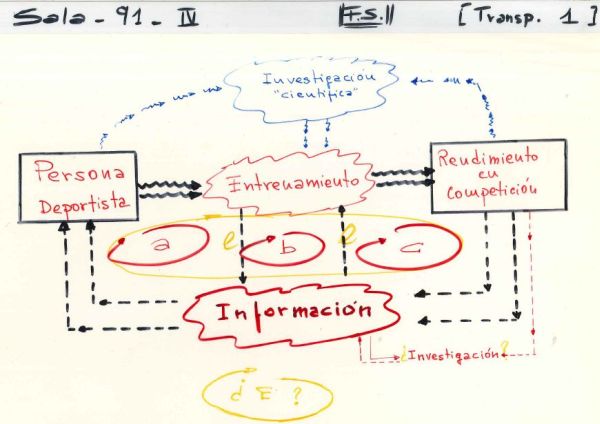 Sala - 91 - IV
F.S.
[Transp. 1]
Investigación
"científica"
Persona
Deportista
Entrenamiento
Rendimiento
en
Competición
a
e
b
e
c
Información
¿Investigación?
¿E?